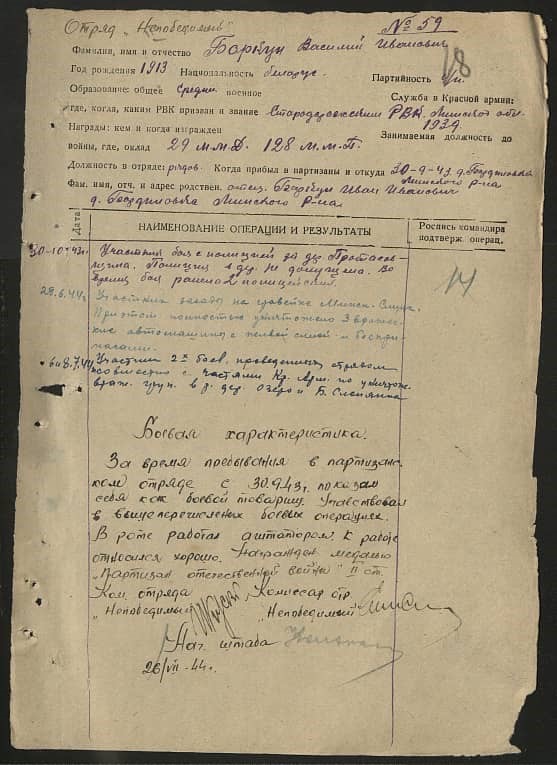 Отряд „Непобедимый"
№ 59
18
Фамилия, имя и отчество Василий Иванович
Год рождения 1913 Национальность белорус Партийность
Образование: общее Средн. военное
Служба в Красной армии:
где, когда, каким РВК призван и звание РВК, Минской обл.
1939.
Награды: кем и когда награжден Занимаемая должность до
войны, где, оклад 29 м.м.Д. 128 м.м.П.
Должность в отряде: рядов. Когда прибыл в партизаны и откуда 30-9-43
Минского р-на
Фам. имя, отч. и адрес родствен. отец Иван Иванович
д. Минского Р-на
Дата
НАИМЕНОВАНИЕ ОПЕРАЦИИ И РЕЗУЛЬТАТЫ
Роспись командира
подтверж. операц.
30-10-43г. Участник боя с полицией за дер.
Полиция в дер. не допущена. Во
время боя ранено 2 полицейских.
29.6.44г. Участник засады на Минск-Слуцк.
При этом полностью уничтожено 3 вражес-
кие автомашины с живой силой и боепри-
пасами.
6 и 8.7.44 Участник 2х боев, проведенных отрядом
совместно с частями Кр. Арм. по уничтож.
враж. групп в р. дер. Озеро и Б. Слепянка
14
Боевая характеристика.
За время пребывания в партизанс-
ком отряде с 30.9.43г. показал
себя как боевой товарищ. Участвовал
в вышеперечисленных боевых операциях.
В роте работал агитатором, к работе
относился хорошо. Награжден медалью
„Партизан отечественной войны" II ст.
Ком. отряда Комиссар отр.
„Непобедимый „Непобедимый
Нач. штаба
26/VII-44г.